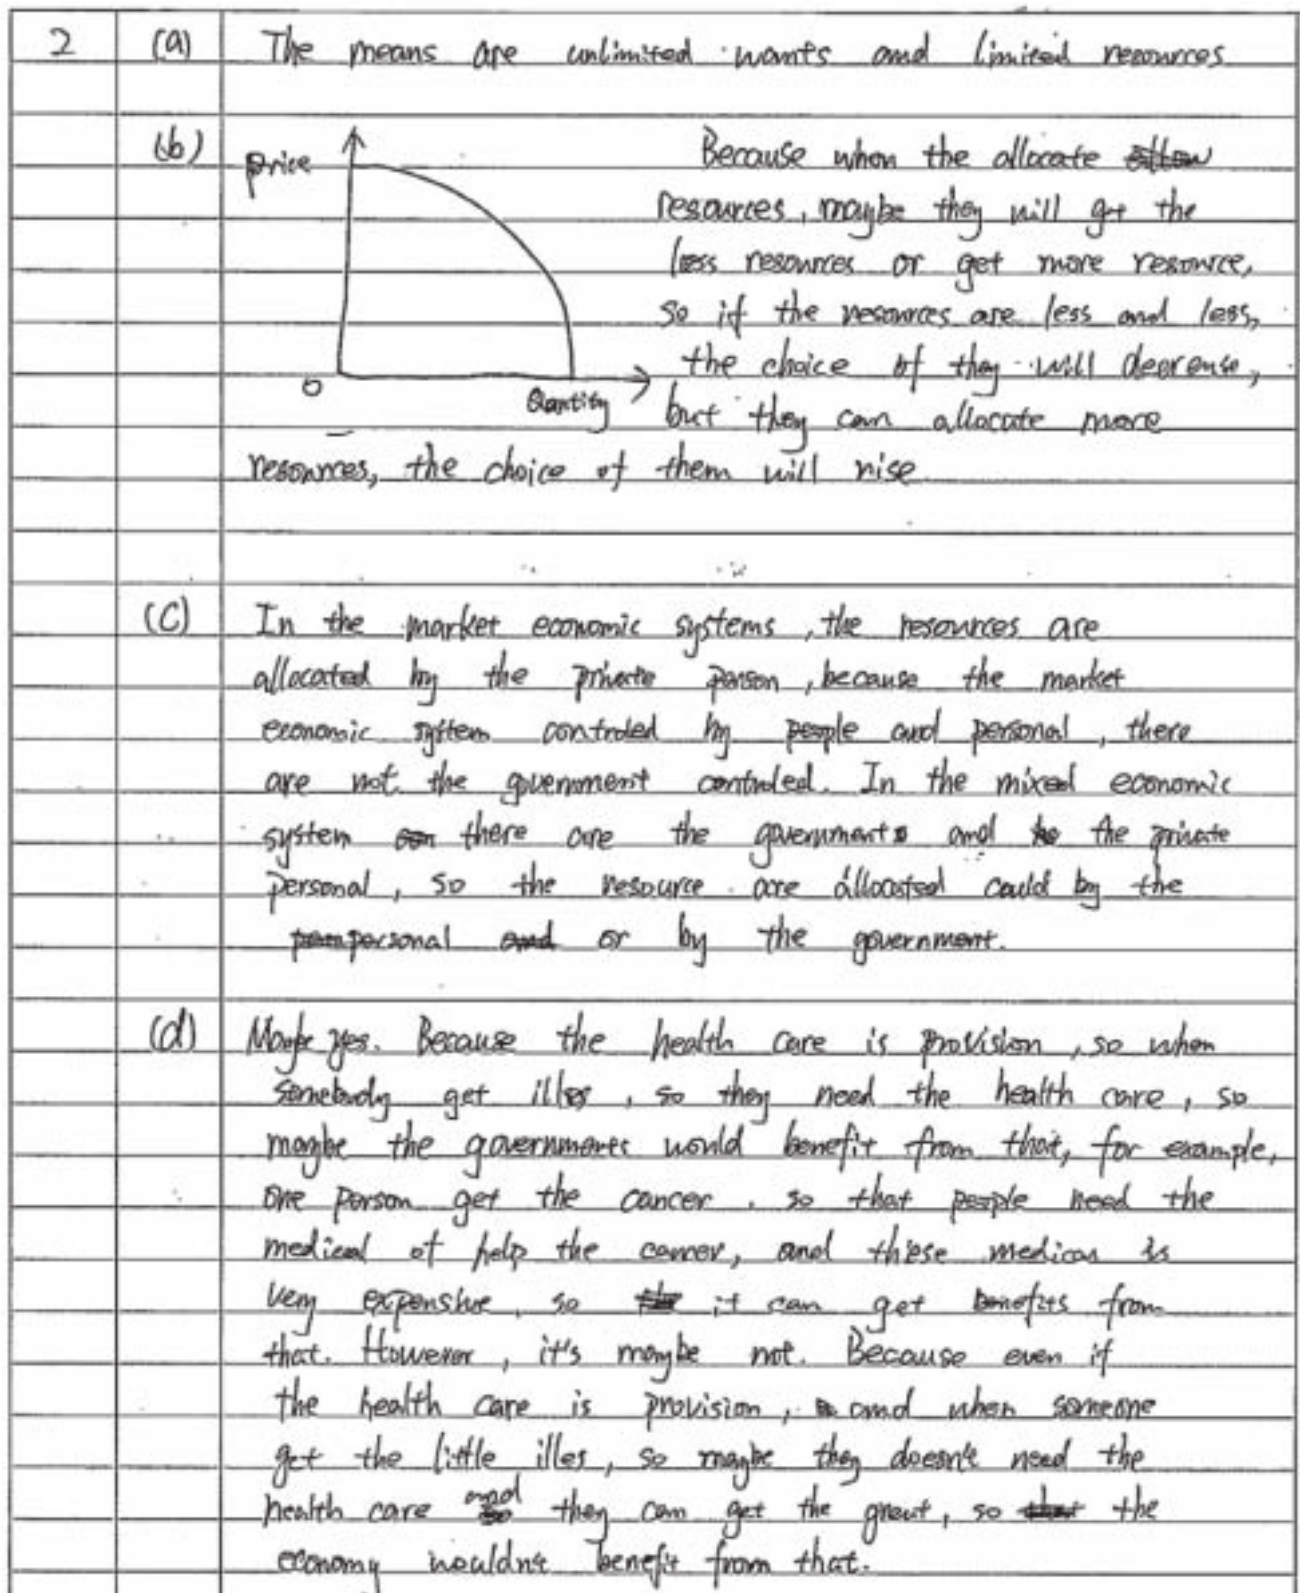 2 (a) The means are unlimited wants and limited resources
(b) price Because when the allocate
resources, maybe they will get the
less resources or get more resource,
so if the resources are less and less,
0 the choice of they will decrease,
Quantity but they can allocate more
resources, the choice of them will rise
(c) In the market economic systems, the resources are
allocated by the private person, because the market
economic system controled by people and personal, there
are not the government controled. In the mixed economic
system there are the governments and the private
personal, so the resource are allocated could by the
personal or by the government.
(d) Maybe yes. Because the health care is provision, so when
somebody get illes, so they need the health care, so
maybe the governments would benefit from that, for example,
one person get the cancer, so that people need the
medical of help the cancer, and these medican is
very expensive, so it can get benefits from
that. However, it's maybe not. Because even if
the health care is provision, and when someone
get the little illes, so maybe they doesn't need the
health care and they can get the great, so the
economy wouldn't benefit from that.